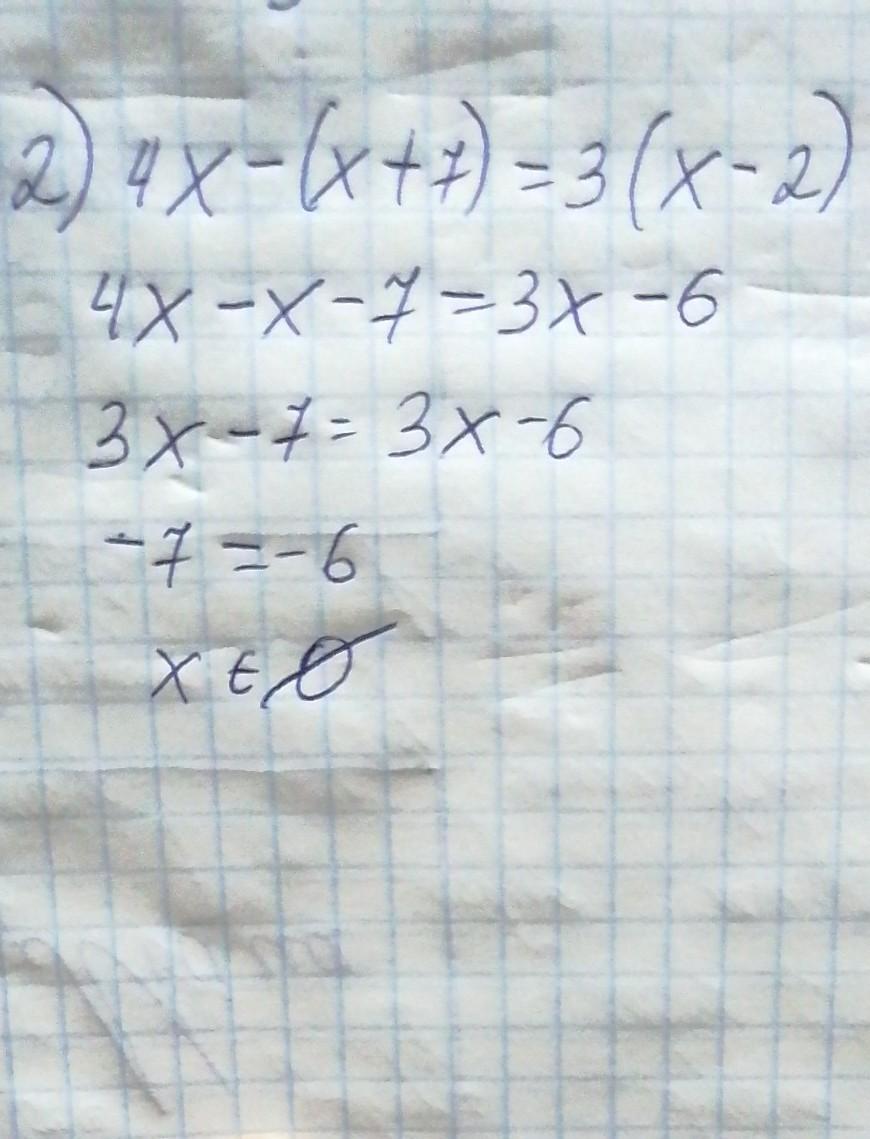 2) 4x-(x+7)=3(x-2)
4x-x-7=3x-6
3x-7=3x-6
-7=-6
x∈∅